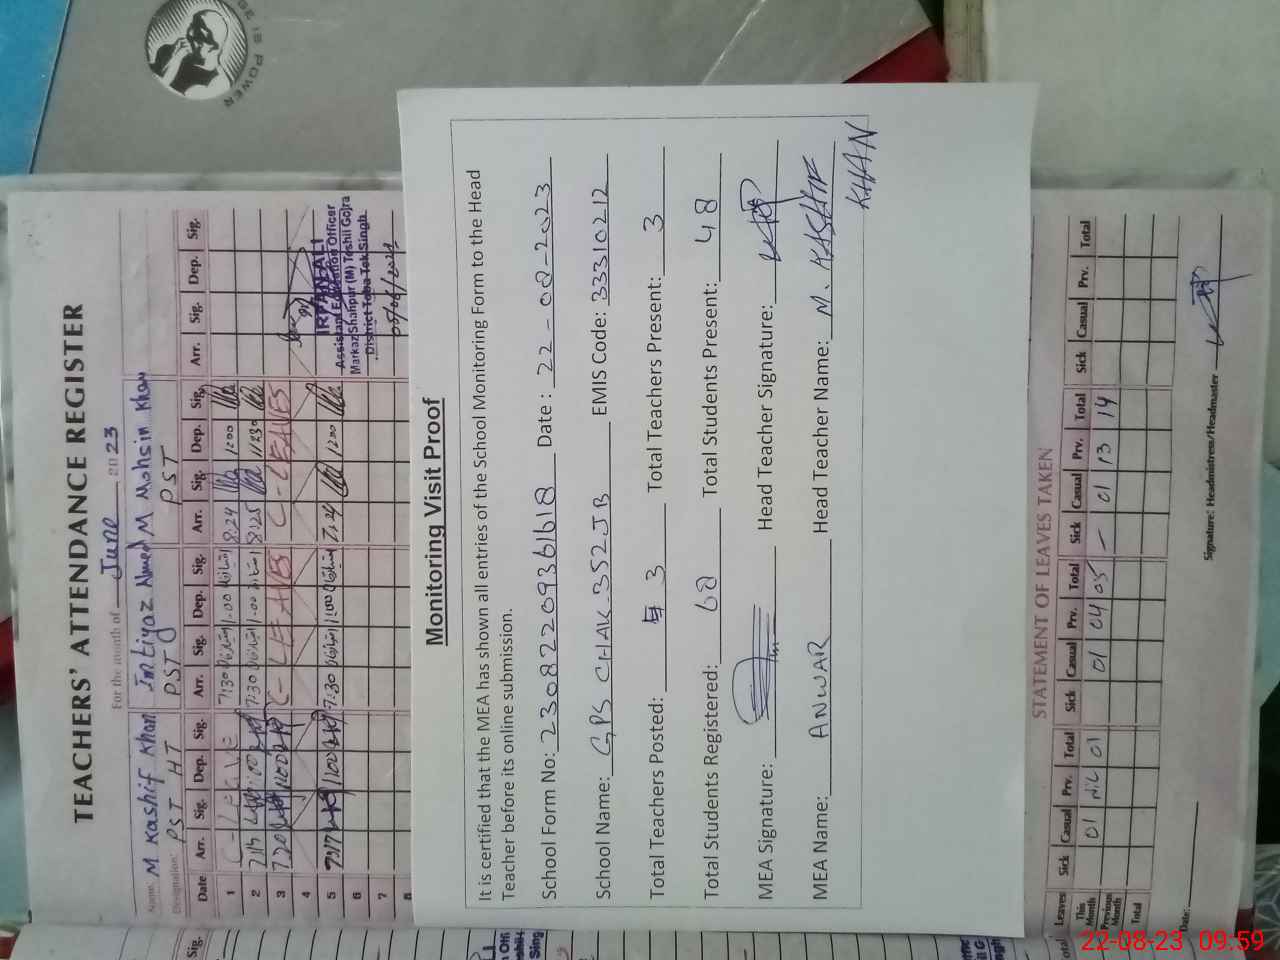 GE IS POWER
TEACHERS' ATTENDANCE REGISTER
For the month of June 2023
Name: M Kashif Khan Imtiyaz Ahmed M Mohsin Khan
Designation: PST HT PST PST
Date Arr. Sig. Dep. Sig. Arr. Sig. Dep. Sig. Arr. Sig. Dep. Sig. Arr. Sig. Dep. Sig.
1 C-LEAVE 7:30 1:00 8:24 1200
2 7:30 1:00 8:25 1130
3 720 1100 C-LEAVES C-LEAVES
4
5 717 1100 7:30 1:00 1200
6
7
8
IRFAN ALI
Assistant Education Officer
Markaz Shahpur (M) Teshil Gojra
District Toba Tek Singh
Monitoring Visit Proof
It is certified that the MEA has shown all entries of the School Monitoring Form to the Head
Teacher before its online submission.
School Form No: 23082209361618 Date : 22-08-2023
School Name: GPS CHAK 352JB EMIS Code: 33310212
Total Teachers Posted: 3 Total Teachers Present: 3
Total Students Registered: 60 Total Students Present: 48
MEA Signature: Head Teacher Signature:
MEA Name: ANWAR Head Teacher Name: M. KASHIF
KHAN
STATEMENT OF LEAVES TAKEN
Leaves Sick Casual Prv. Total Sick Casual Prv. Total Sick Casual Prv. Total Sick Casual Prv. Total
This Month 01 Nil 01 01 04 05 – 01 13 14
Previous Month
Total
Date: Signature: Headmistress/Headmaster
22-08-23 09:59